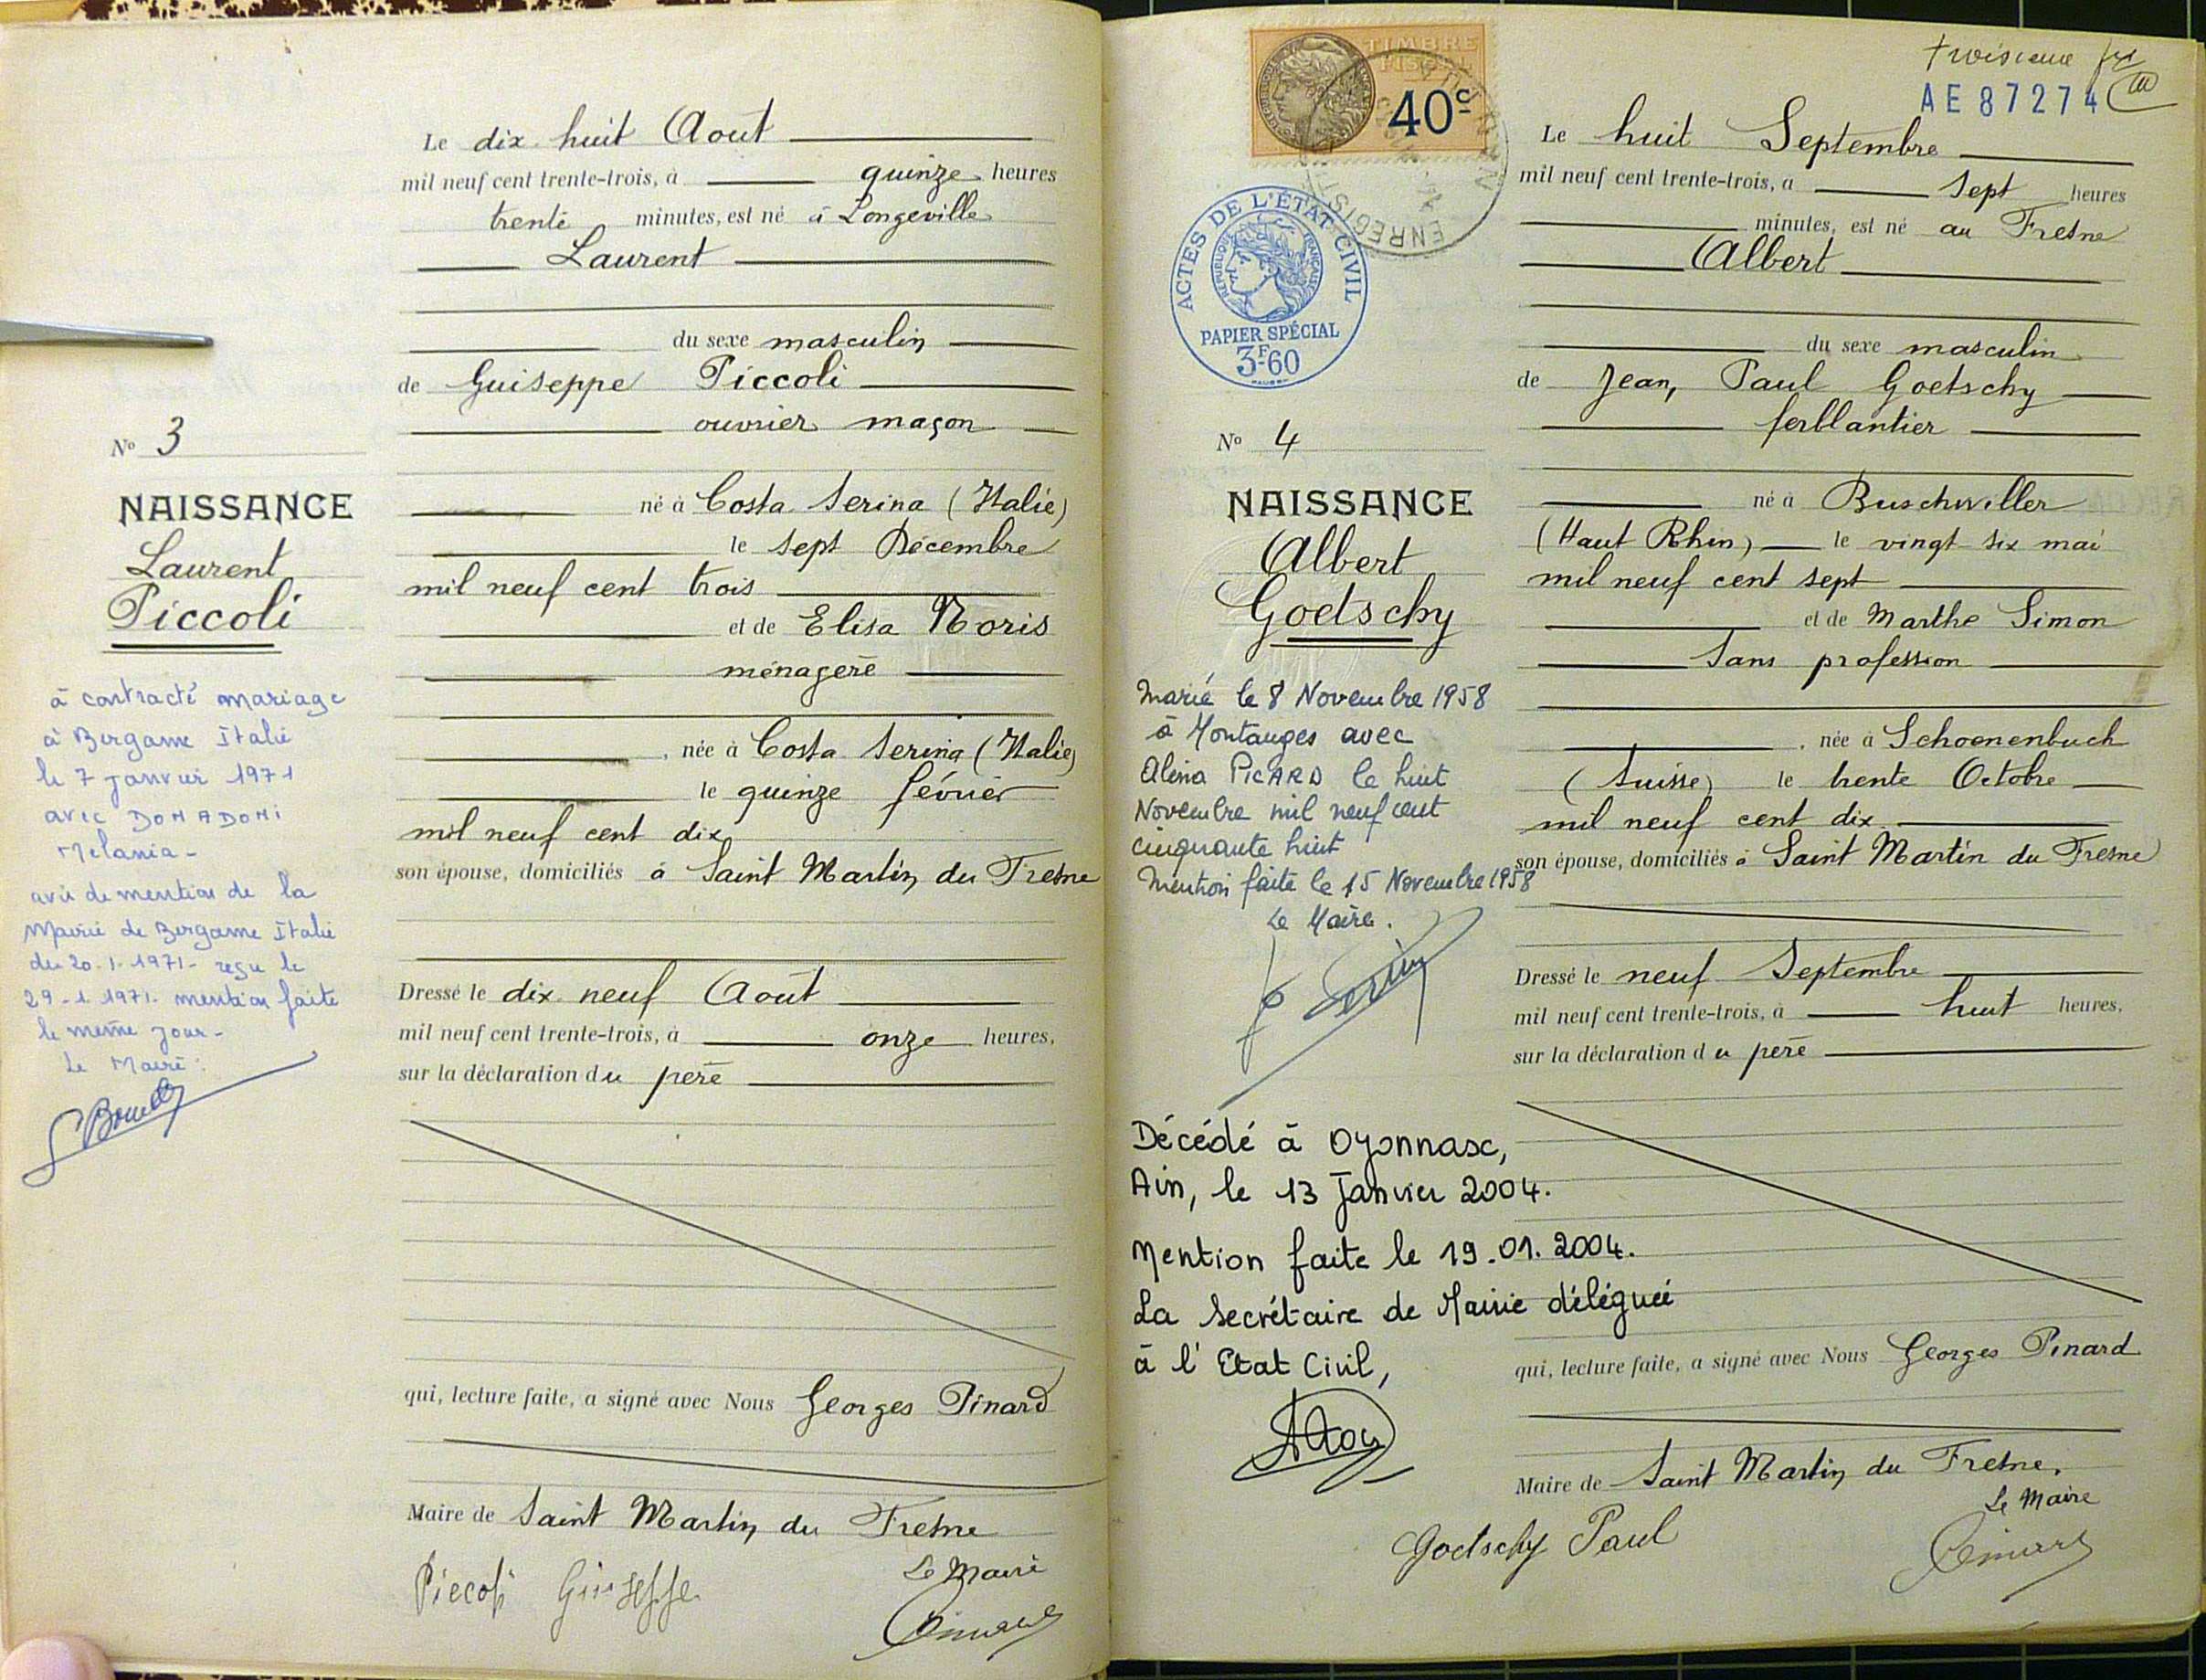 Le dix huit Août
mil neuf cent trente-trois, à quinze heures
trente minutes, est né à Longeville
Laurent
du sexe masculin
de Guiseppe Piccoli
ouvrier maçon
né à Costa Serina (Italie)
le sept Décembre
mil neuf cent trois
et de Elisa Noris
ménagère
, née à Costa Serina (Italie)
le quinze février
mil neuf cent dix
son épouse, domiciliés à Saint Martin du Fresne
Dressé le dix neuf Août
mil neuf cent trente-trois, à onze heures,
sur la déclaration du père
qui, lecture faite, a signé avec Nous Georges Pinard
Maire de Saint Martin du Fresne
Le Maire
Piccoli Giuseppe
Nº 3
NAISSANCE
Laurent
Piccoli
à contracté mariage
à Bergame Italie
le 7 janvier 1971
avec DONADONI
Melania -
avis de mention de la
Mairie de Bergame Italie
du 20.1.1971 - reçu le
29-1 1971. mention faite
le même jour -
Le Maire :
TIMBRE
FISCAL
40c
ENREGIST
ACTES DE L'ÉTAT CIVIL
RÉPUBLIQUE FRANÇAISE
PAPIER SPÉCIAL
3F60
troisième
AE 87274
Le huit Septembre
mil neuf cent trente-trois, à sept heures
minutes, est né au Fresne
Albert
du sexe masculin
de Jean, Paul Goetschy
ferblantier
né à Buschwiller
(Haut Rhin) le vingt six mai
mil neuf cent sept
et de Marthe Simon
Sans profession
, née à Schoenenbuch
(Suisse) le trente Octobre
mil neuf cent dix
son épouse, domiciliés à Saint Martin du Fresne
Dressé le neuf Septembre
mil neuf cent trente-trois, à huit heures,
sur la déclaration du père
qui, lecture faite, a signé avec Nous Georges Pinard
Maire de Saint Martin du Fresne,
Le Maire
Goetschy Paul
Nº 4
NAISSANCE
Albert
Goetschy
Marié le 8 Novembre 1958
à Montanges avec
Alina PICARD le huit
Novembre mil neuf cent
cinquante huit
Mention faite le 15 Novembre 1958
Le Maire.
Décédé à Oyonnax,
Ain, le 13 Janvier 2004.
Mention faite le 19.01.2004.
La Secrétaire de Mairie déléguée
à l'Etat Civil,